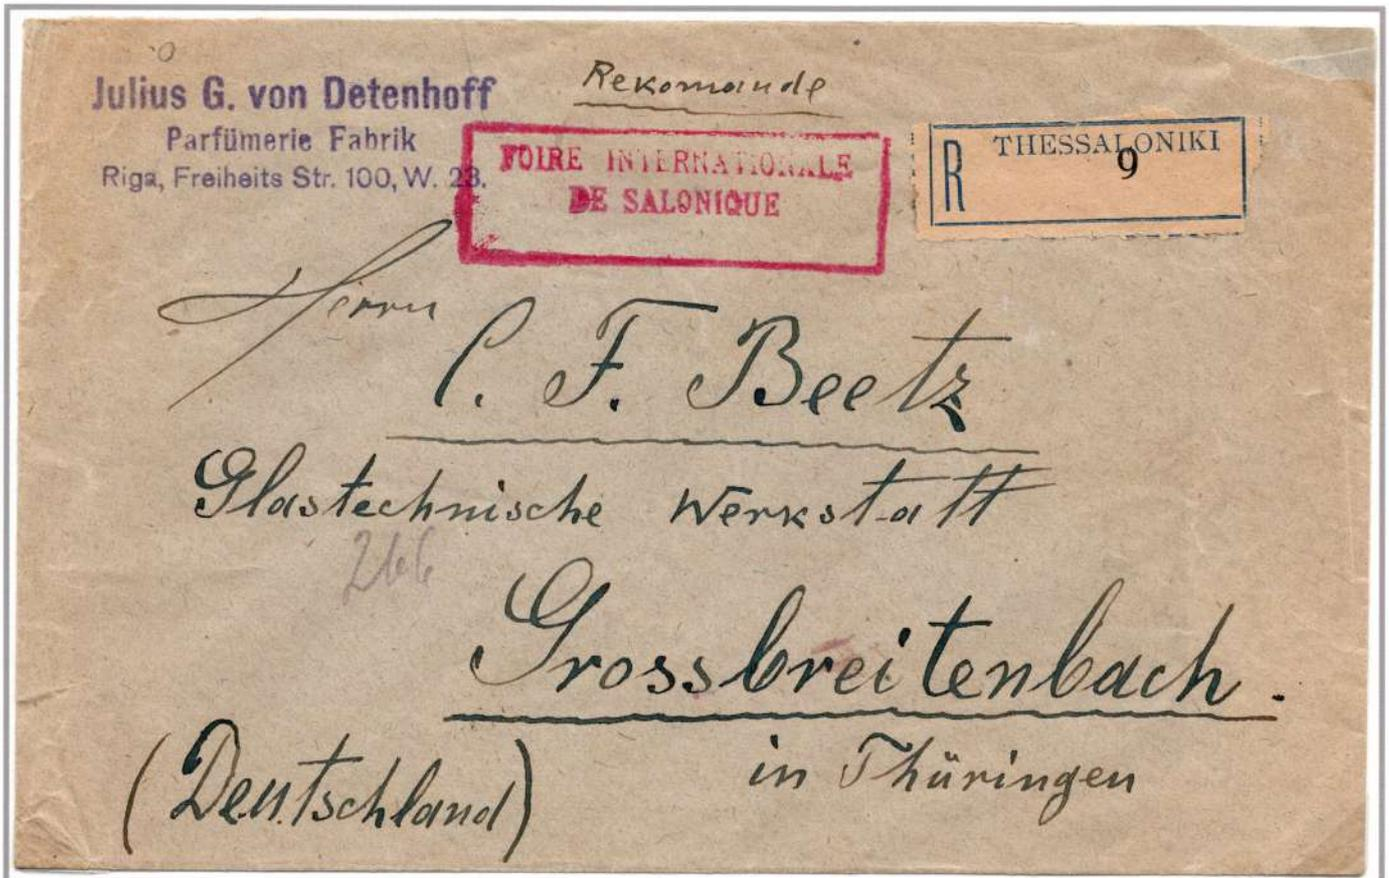 Julius G. von Detenhoff
Parfümerie Fabrik
Riga, Freiheits Str. 100, W. 23.
Rekomainde
FOIRE INTERNATIONALE
DE SALONIQUE
R THESSALONIKI
9
Herrn
C. F. Beetz
Glastechnische Werkstatt
266
Grossbreitenbach.
in Thüringen
(Deutschland)